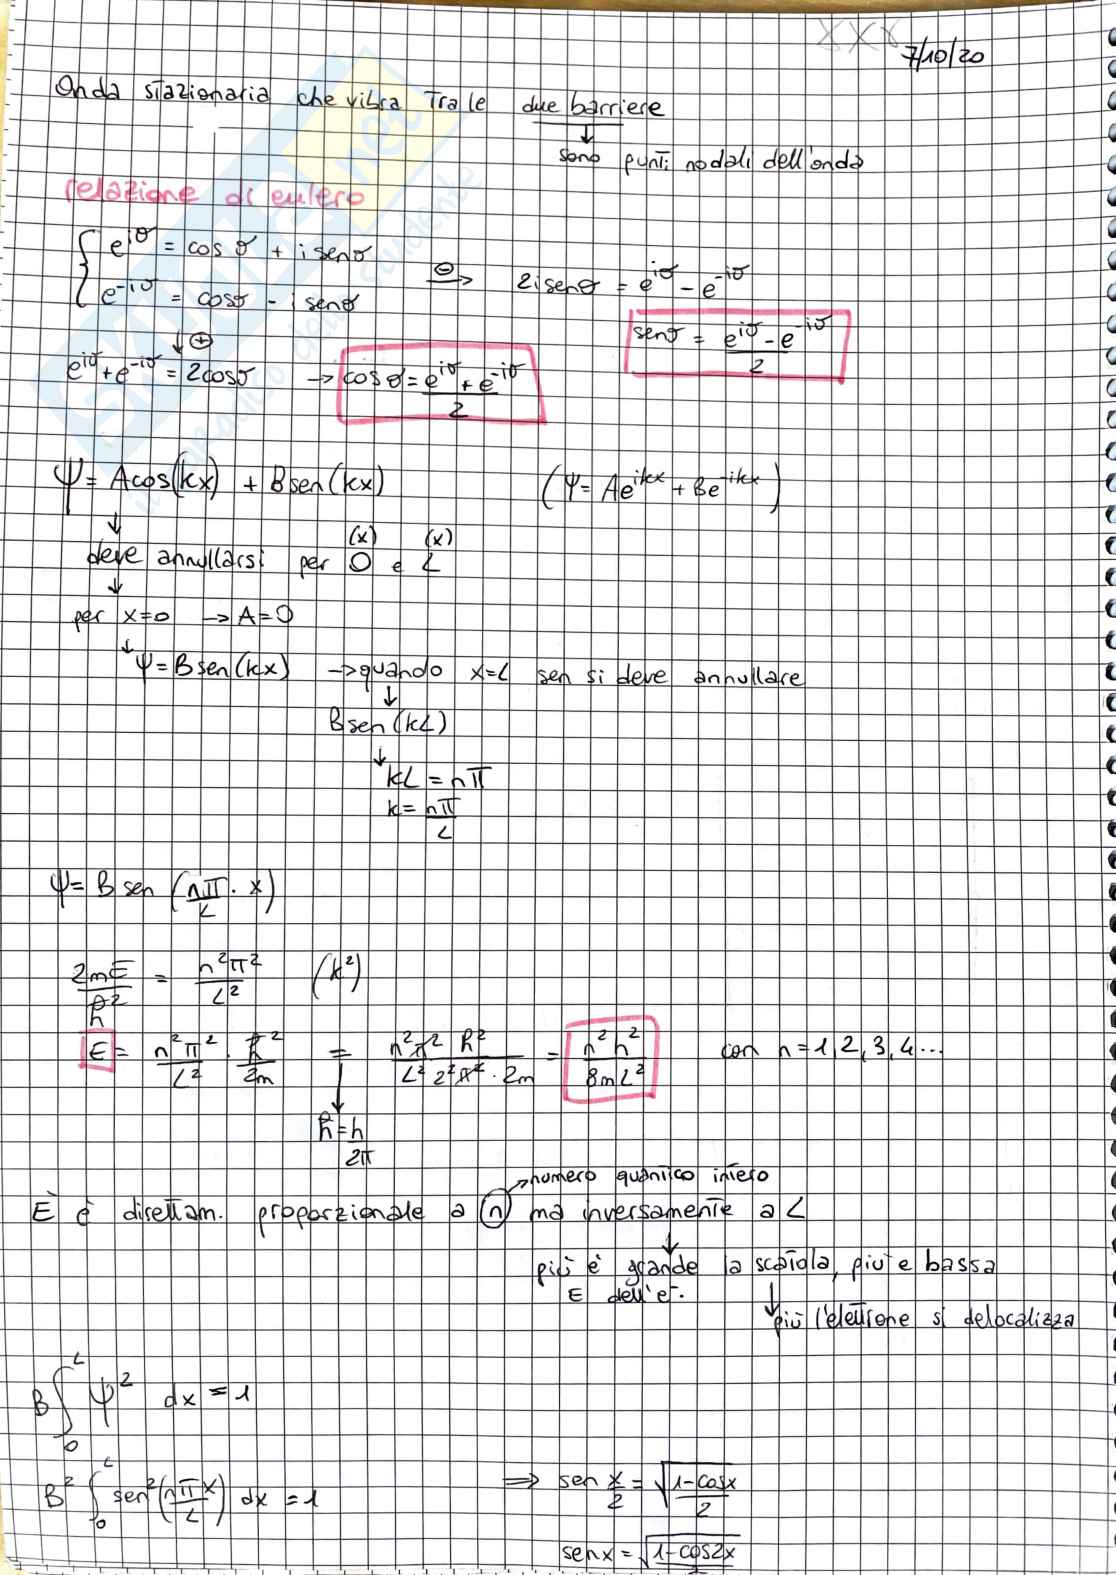 xxx 7/10/20
Onda stazionaria che vibra tra le due barriere
↓
sono punti nodali dell'onda
relazione di eulero
{ e^{iσ} = cos σ + i sen σ
e^{-iσ} = cos σ - i sen σ ⊖→ 2i sen σ = e^{iσ} - e^{-iσ}
↓⊕ sen σ = (e^{iσ} - e^{-iσ})/2
e^{iσ} + e^{-iσ} = 2cos σ → cos σ = (e^{iσ} + e^{-iσ})/2
ψ = A cos(kx) + B sen(kx) (ψ = Ae^{ikx} + Be^{-ikx})
↓ (x) (x)
deve annullarsi per O e L
↓
per x=0 → A=0
↓ ψ = B sen(kx) → quando x=L sen si deve annullare
↓
B sen(kL)
↓ kL = nπ
k = nπ/L
ψ = B sen (nπ/L · x)
2mE/ħ² = n²π²/L² (k²)
E = n²π²/L² · ħ²/2m = n²π² h²/L² 2²π² · 2m = n²h²/8mL² con n = 1, 2, 3, 4...
↓
ħ = h/2π
→ numero quantico intero
E è direttam. proporzionale a n ma inversamente a L
↓
più è grande la scatola, più e bassa
E dell'e⁻. ↓ più l'elettrone si delocalizza
B ∫₀ᴸ ψ² dx = 1
B² ∫₀ᴸ sen²(nπx/L) dx = 1 ⇒ sen x/2 = √((1-cosx)/2)
sen x = √(1-cos2x